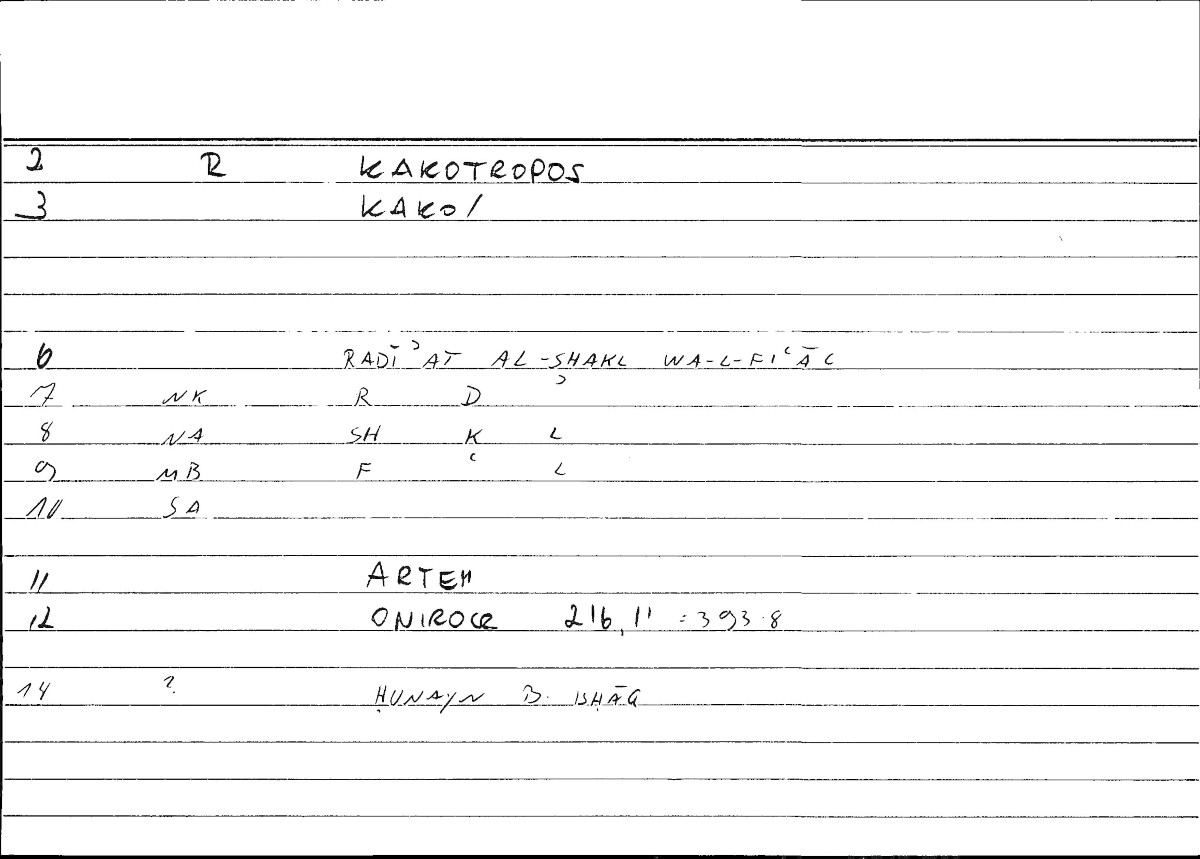 2 R KAKOTROPOS
3 KAKO/
6 RADĪʾAT AL-SHAKL WA-L-FIʿĀL
7 NK R D ʾ
8 NA SH K L
9 MB F ʿ L
10 SA
11 ARTEM
12 ONIROCR 216,11 = 393.8
14 ? ḤUNAYN B. ISḤĀQ